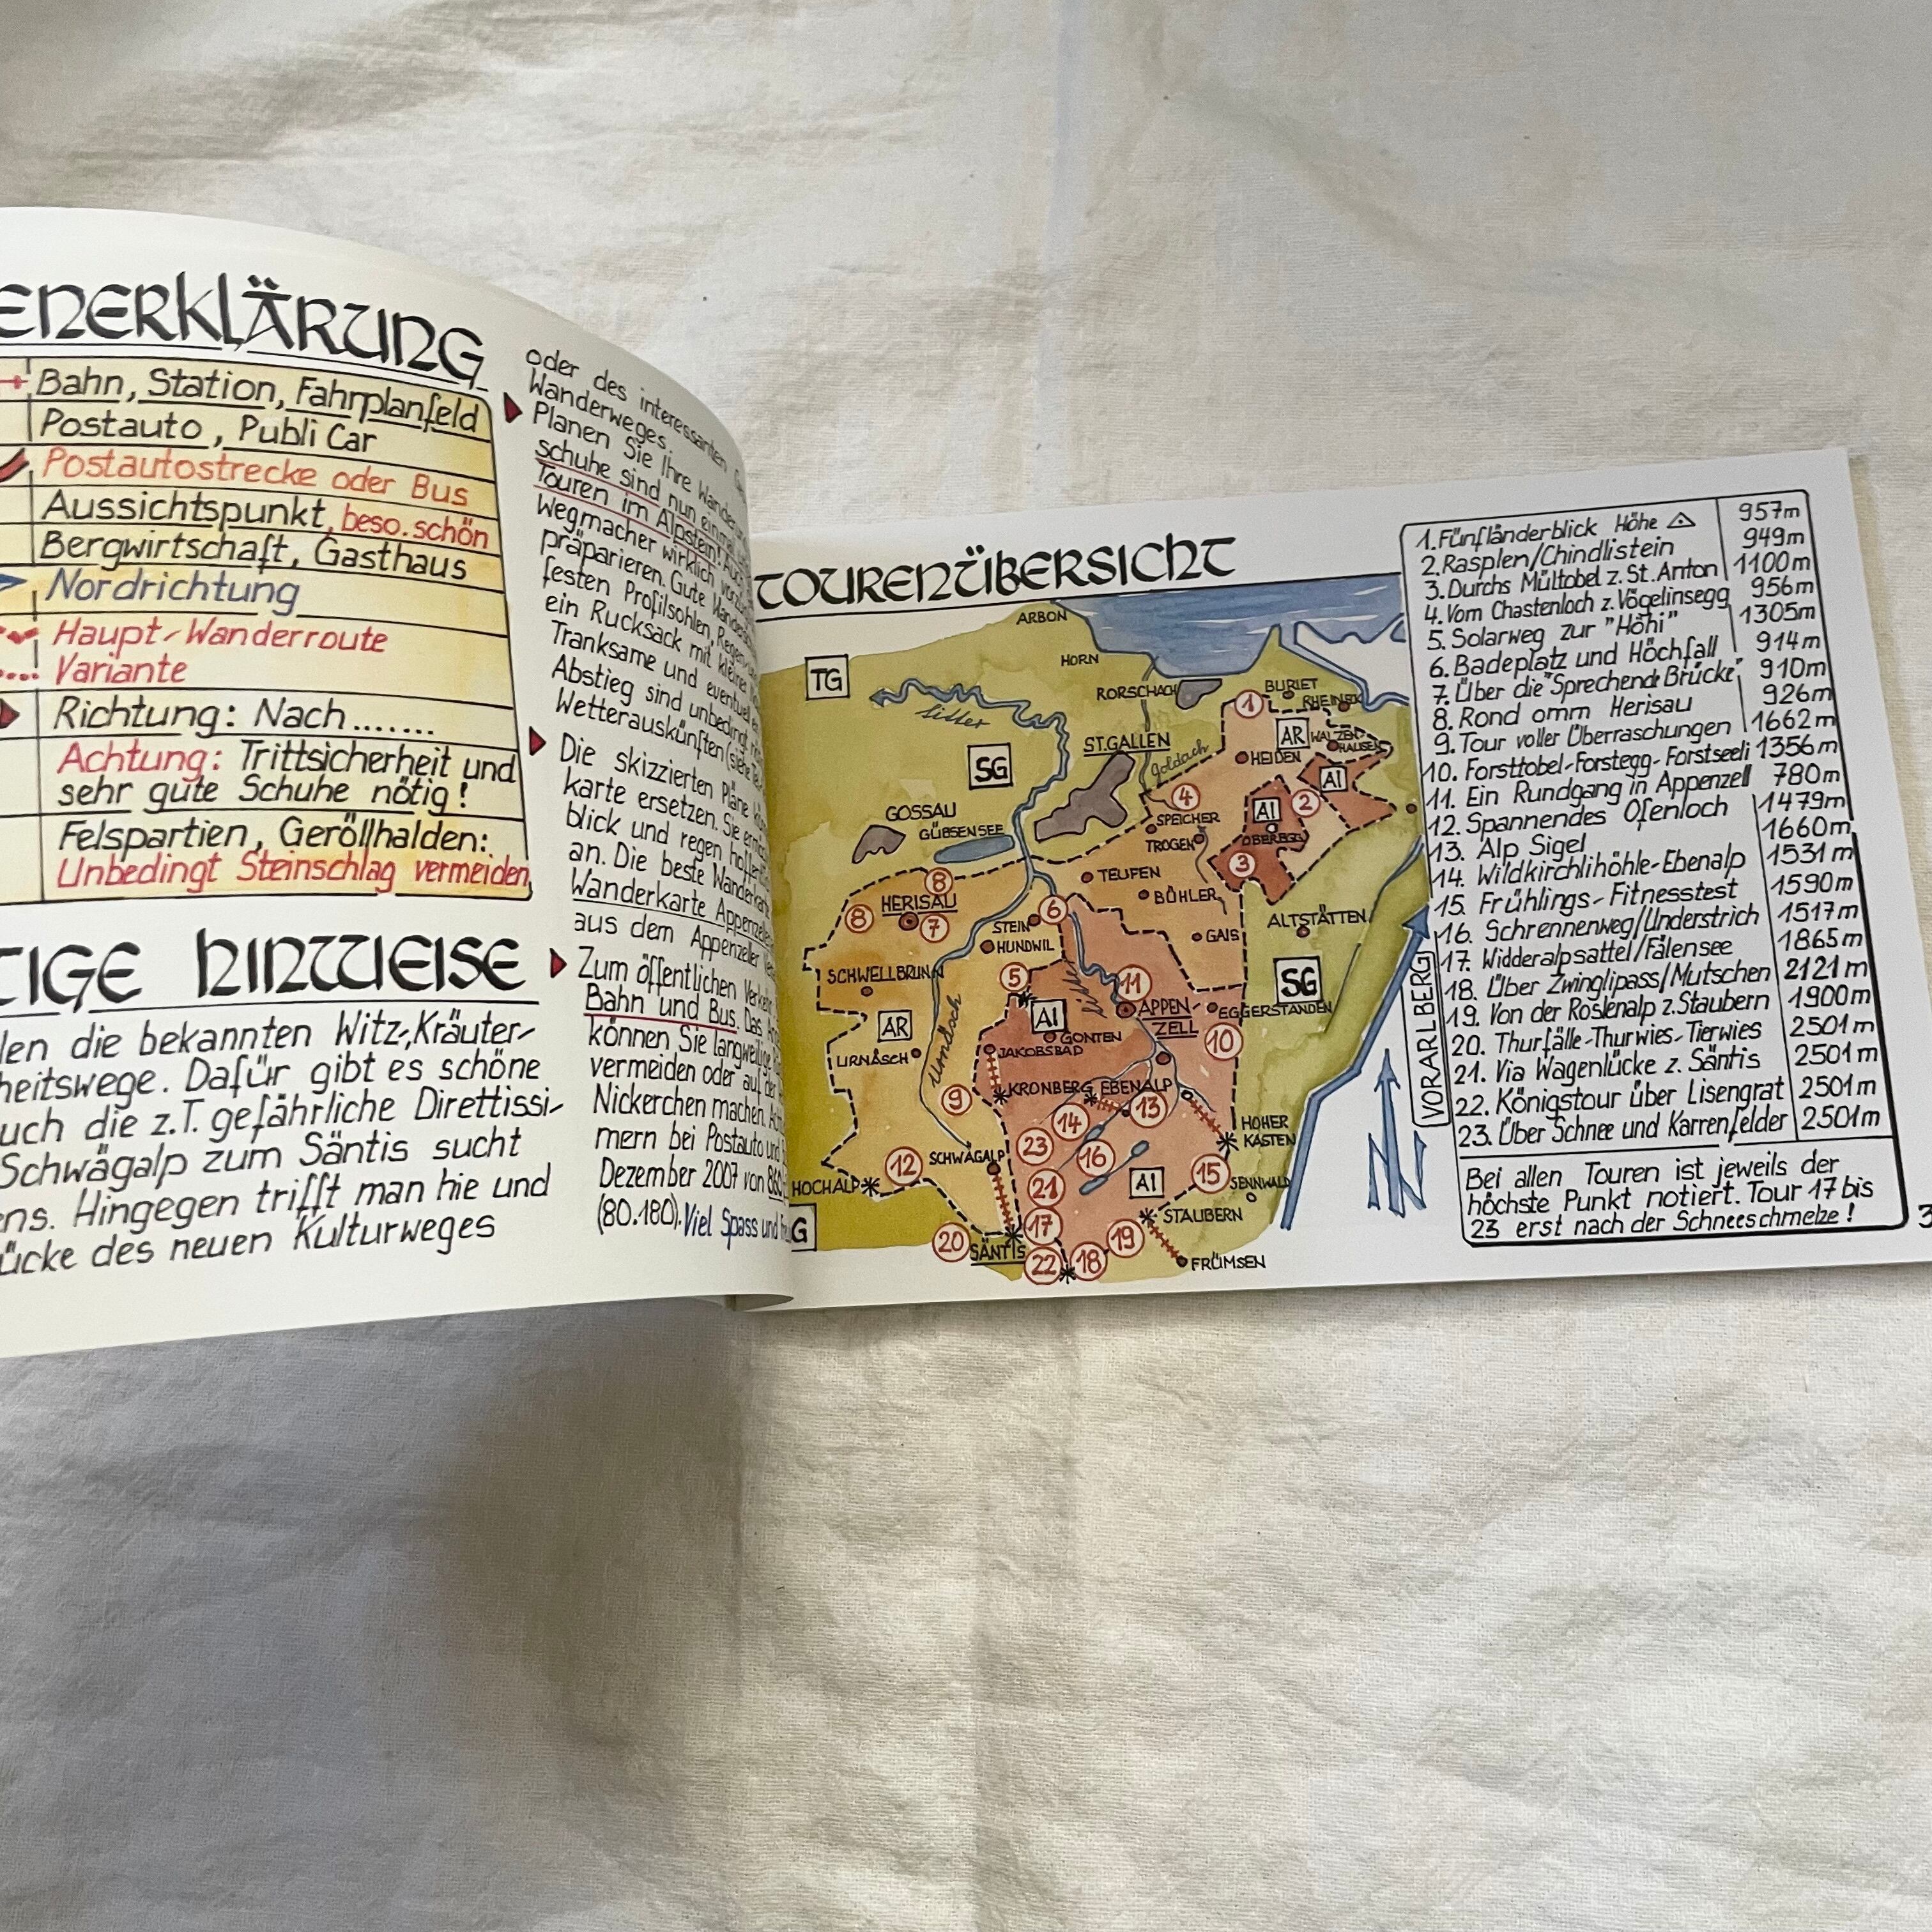 ENERKLÄRUNG
Bahn, Station, Fahrplanfeld
Postauto, Publi Car
Postautostrecke oder Bus
Aussichtspunkt, beso. schön
Bergwirtschaft, Gasthaus
Nordrichtung
Haupt-Wanderroute
Variante
Richtung: Nach.......
Achtung: Trittsicherheit und
sehr gute Schuhe nötig!
Felspartien, Geröllhalden:
Unbedingt Steinschlag vermeiden
TIGE HINWEISE
len die bekannten Witz-, Kräuter-
heitswege. Dafür gibt es schöne
uch die z.T. gefährliche Direttissi-
Schwägalp zum Säntis sucht
ens. Hingegen trifft man hie und
ücke des neuen Kulturweges
oder des interessanten
Wanderweges.
Planen Sie Ihre
schuhe sind nun einmal
Touren im Alpstein!
Wegmacher wirklich
präparieren. Gute
festen Profilsohlen,
ein Rucksack mit kleine
Tranksame und eventuel
Abstieg sind unbedingt
Wetterauskünften (siehe
Die skizzierten Pläne
karte ersetzen. Sie
blick und regen
an. Die beste
Wanderkarte
aus dem Appenzeller
Zum öffentlichen
Bahn und Bus. Das
können Sie langweilige
vermeiden oder auf der
Nickerchen machen.
mern bei Postauto und
Dezember 2007 von 860
(80.180). Viel Spass und
TOURENÜBERSICHT
ARBON
HORN
TG
RORSCHACH
BURIET
RHEINECK
Sitter
1
AR
WALZEN-
HAUSEN
ST.GALLEN
Goldach
SG
HEIDEN
AI
4
AI
2
GOSSAU
SPEICHER
GÜBSENSEE
TROGEN
OBEREGG
3
8
TEUFEN
HERISAU
BÜHLER
8
7
STEIN
6
ALTSTÄTTEN
HUNDWIL
GAIS
SCHWELLBRUNN
5
Sitter
11
SG
APPEN-
ZELL
EGGERSTANDEN
AR
AI
Urnäsch
GONTEN
10
URNÄSCH
JAKOBSBAD
KRONBERG
EBENALP
9
14
13
HOHER
KASTEN
23
12
SCHWÄGALP
16
15
HOCHALP
21
AI
SENNWALD
G
17
STAUBERN
20
SÄNTIS
19
22
18
FRÜMSEN
VORARLBERG
N
1. Fünfländerblick Höhe 957m
2. Rasplen/Chindlistein 949m
3. Durchs Mültobel z. St. Anton 1100m
4. Vom Chastenloch z. Vögelinsegg 956m
5. Solarweg zur "Höhi" 1305m
6. Badeplatz und Höchfall 914m
7. Über die "Sprechende Brücke" 910m
8. Rond omm Herisau 926m
9. Tour voller Überraschungen 1662m
10. Forsttobel-Forstegg-Forstseeli 1356m
11. Ein Rundgang in Appenzell 780m
12. Spannendes Ofenloch 1479m
13. Alp Sigel 1660m
14. Wildkirchlihöhle-Ebenalp 1531m
15. Frühlings-Fitnesstest 1590m
16. Schrennenweg/Understrich 1517m
17. Widderalpsattel/Fälensee 1865m
18. Über Zwinglipass/Mutschen 2121m
19. Von der Roslenalp z. Staubern 1900m
20. Thurfälle-Thurwies-Tierwies 2501m
21. Via Wagenlücke z. Säntis 2501m
22. Königstour über Lisengrat 2501m
23. Über Schnee und Karrenfelder 2501m
Bei allen Touren ist jeweils der
höchste Punkt notiert. Tour 17 bis
23 erst nach der Schneeschmelze!
3